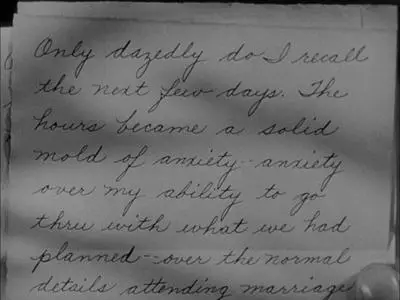 Only dazedly do I recall
the next few days. The
hours became a solid
mold of anxiety--anxiety
over my ability to go
thru with what we had
planned--over the normal
details attending marriage